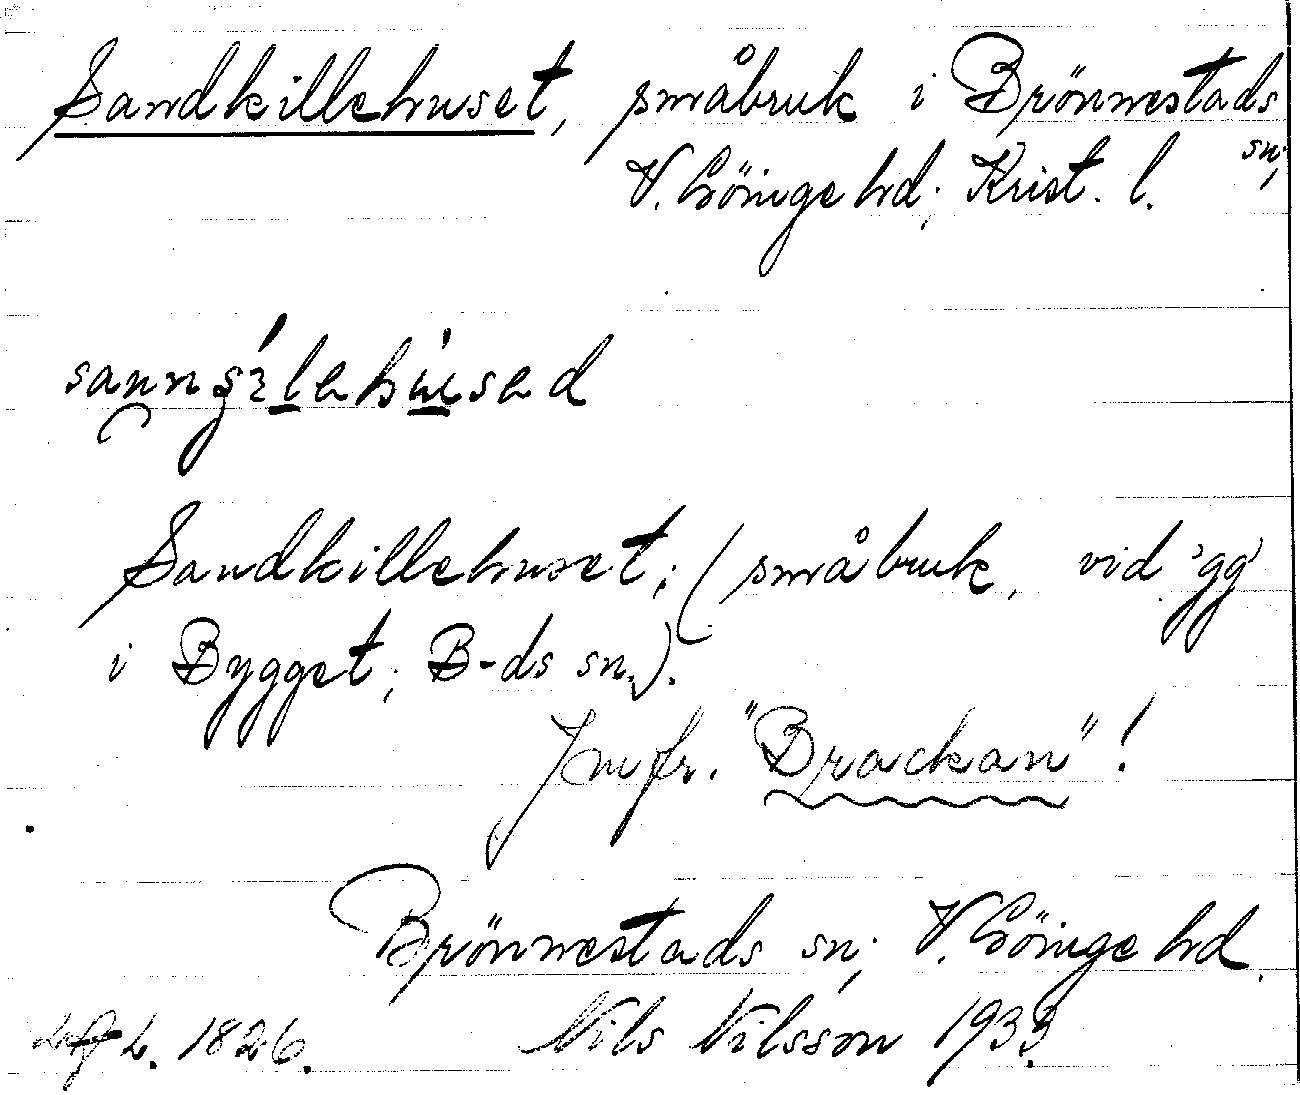 Sandkillehuset, småbruk i Brönnestads
sn;
V. Göinge hd; Krist. l.
Sandkillehuset; (småbruk, vid gg
i Bygget; B-ds sn.).
Jmfr. "Brackan"!
Brönnestads sn; V. Göinge hd.
1826. Nils Nilsson 1933